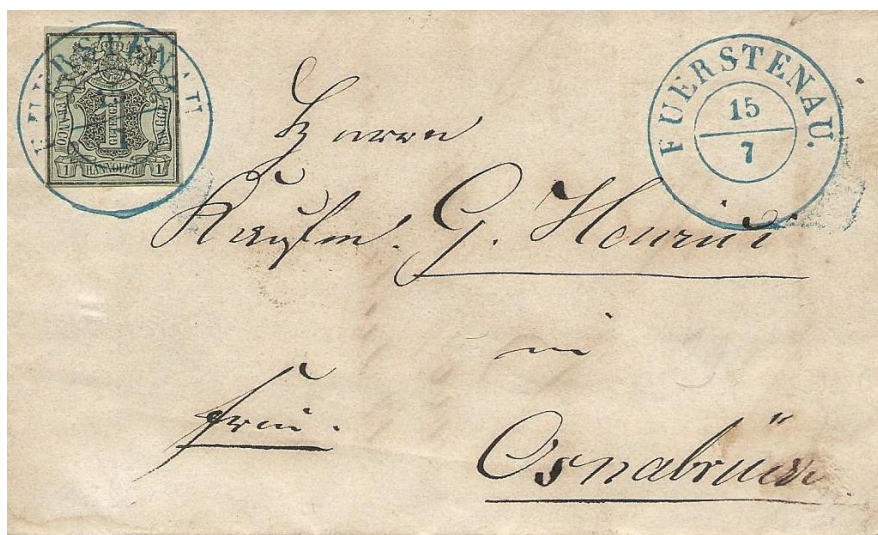 FUERSTENAU
FRANCO
EIN GGR.
1 HANNOVER 1
FUERSTENAU.
15
7
Herrn
Kaufm. G. Henrici
in
frei.
Osnabrück.